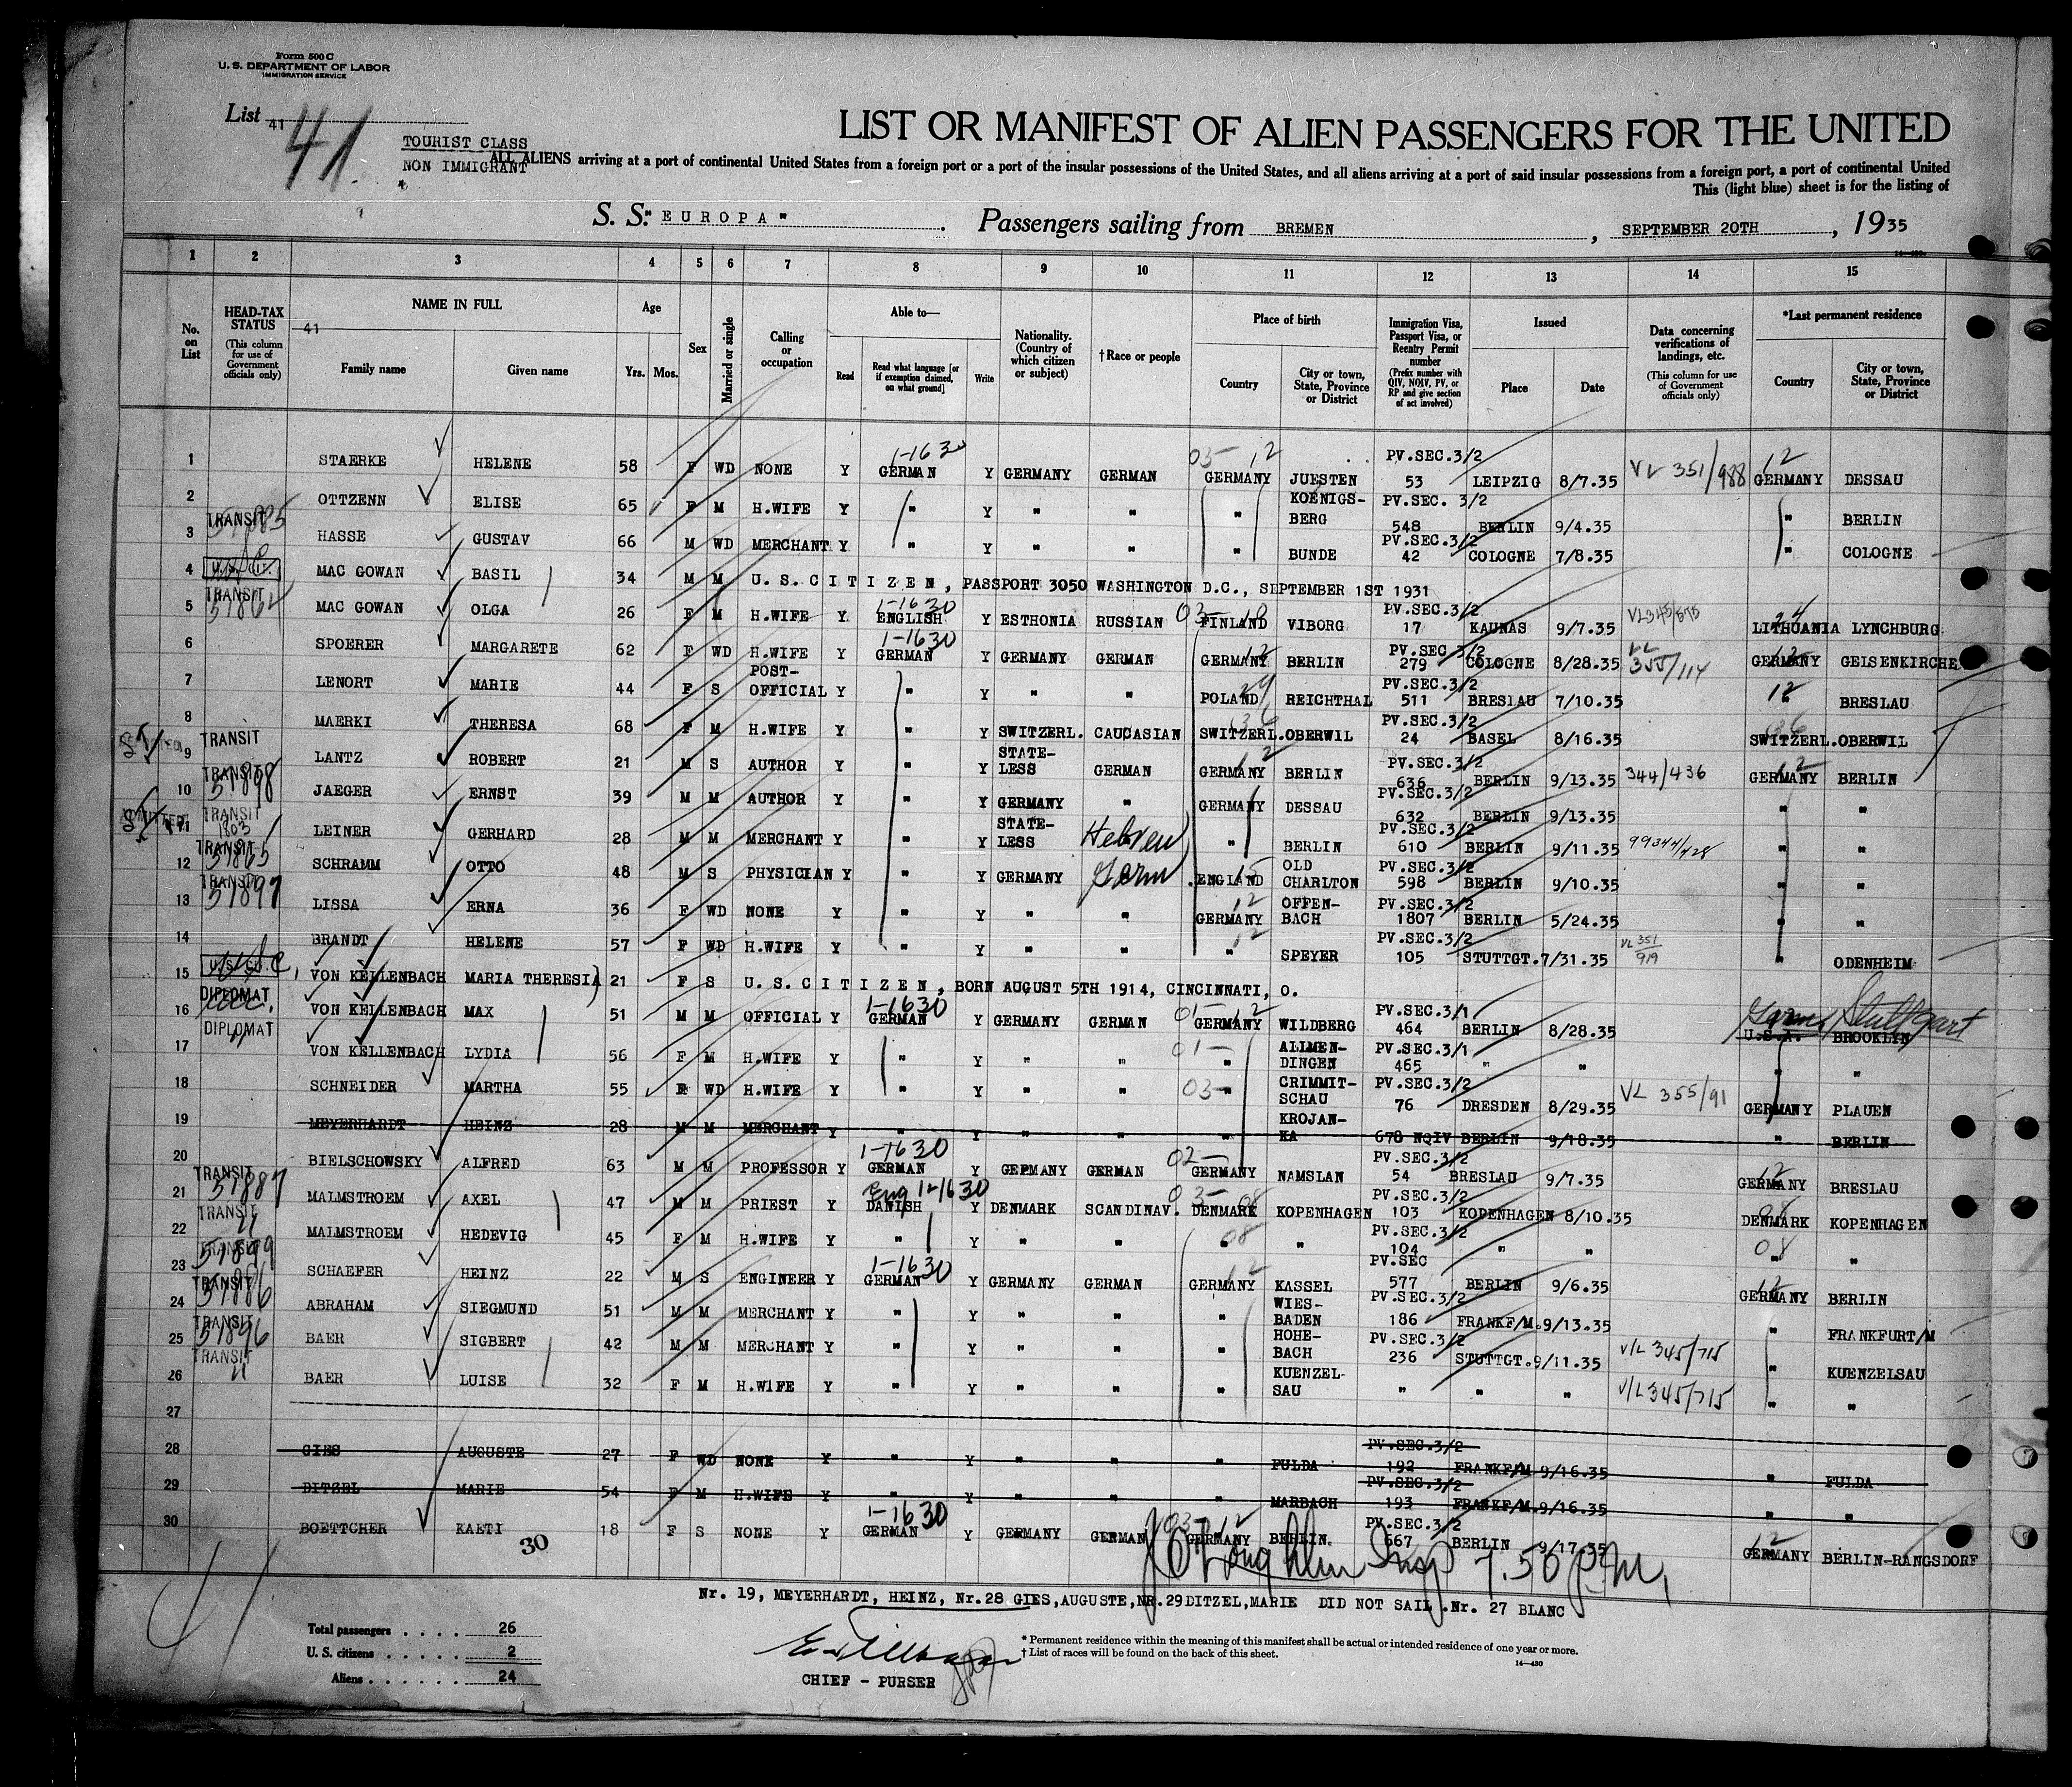 Form 500 C
U. S. DEPARTMENT OF LABOR
IMMIGRATION SERVICE
List 41
41
TOURIST CLASS
NON IMMIGRANT
LIST OR MANIFEST OF ALIEN PASSENGERS FOR THE UNITED
ALL ALIENS arriving at a port of continental United States from a foreign port or a port of the insular possessions of the United States, and all aliens arriving at a port of said insular possessions from a foreign port, a port of continental United
This (light blue) sheet is for the listing of
S. S. "EUROPA" . Passengers sailing from BREMEN , SEPTEMBER 20TH , 1935
14—430
1 2 3 4 5 6 7 8 9 10 11 12 13 14 15
No. on List
HEAD-TAX STATUS (This column for use of Government officials only)
NAME IN FULL
41
Family name Given name
Age
Yrs. Mos.
Sex
Married or single
Calling or occupation
Able to—
Read Read what language [or if exemption claimed, on what ground] Write
Nationality. (Country of which citizen or subject)
†Race or people
Place of birth
Country City or town, State, Province or District
Immigration Visa, Passport Visa, or Reentry Permit number (Prefix number with QIV, NQIV, PV, or RP and give section of act involved)
Issued
Place Date
Data concerning verifications of landings, etc. (This column for use of Government officials only)
*Last permanent residence
Country City or town, State, Province or District
1 STAERKE HELENE 58 F WD NONE Y 1-1630 GERMAN Y GERMANY GERMAN 03- 12 GERMANY JUESTEN PV.SEC.3/2 53 LEIPZIG 8/7.35 VL 351/988 12 GERMANY DESSAU
2 OTTZENN ELISE 65 F M H.WIFE Y " Y " " " KOENIGS-BERG PV.SEC. 3/2 548 BERLIN 9/4.35 " BERLIN
3 TRANSIT 51885 HASSE GUSTAV 66 M WD MERCHANT Y " Y " " " BUNDE PV.SEC.3/2 42 COLOGNE 7/8.35 " COLOGNE
4 U.S. CIT. MAC GOWAN BASIL 34 M M U. S. C I T I Z E N , PASSPORT 3050 WASHINGTON D.C., SEPTEMBER 1ST 1931
5 TRANSIT MAC GOWAN OLGA 26 F M H.WIFE Y 1-1630 ENGLISH Y ESTHONIA RUSSIAN 03- 18 FINLAND VIBORG PV.SEC.3/2 17 KAUNAS 9/7.35 24 LITHUANIA LYNCHBURG
6 SPOERER MARGARETE 62 F WD H.WIFE Y 1-1630 GERMAN Y GERMANY GERMAN 12 GERMANY BERLIN PV.SEC 3/2 279 COLOGNE 8/28.35 VL 355/114 12 GERMANY GELSENKIRCHE
7 LENORT MARIE 44 F S POST-OFFICIAL Y " Y " " 29 POLAND REICHTHAL PV.SEC.3/2 511 BRESLAU 7/10.35 12 " BRESLAU
8 MAERKI THERESA 68 F M H.WIFE Y " Y SWITZERL. CAUCASIAN 36 SWITZERL. OBERWIL PV.SEC.3/2 24 BASEL 8/16.35 36 SWITZERL. OBERWIL
9 TRANSIT LANTZ ROBERT 21 M S AUTHOR Y " Y STATE-LESS GERMAN 12 GERMANY BERLIN PV.SEC.3/2 636 BERLIN 9/13.35 344/436 12 GERMANY BERLIN
10 TRANSIT 51898 JAEGER ERNST 39 M M AUTHOR Y " Y GERMANY " GERMANY DESSAU PV.SEC.3/2 632 BERLIN 9/13.35 " "
11 TRANSIT 1803 LEINER GERHARD 28 M M MERCHANT Y " Y STATE-LESS Hebrew " BERLIN PV.SEC.3/2 610 BERLIN 9/11.35 " "
12 TRANSIT 51865 SCHRAMM OTTO 48 M S PHYSICIAN Y " Y GERMANY Germ. 15 ENGLAND OLD CHARLTON PV.SEC.3/2 598 BERLIN 9/10.35 " "
13 TRANSIT 51897 LISSA ERNA 36 F WD NONE Y " Y " " 12 GERMANY OFFEN-BACH PV.SEC.3/2 1807 BERLIN 5/24.35 " "
14 BRANDT HELENE 57 F WD H.WIFE Y " Y " " 12 " SPEYER PV.SEC.3/2 105 STUTTGT. 7/31.35 VL 351/919 " ODENHEIM
15 U.S. CIT. VON KELLENBACH MARIA THERESIA 21 F S U. S. C I T I Z E N , BORN AUGUST 5TH 1914, CINCINNATI, O.
16 DIPLOMAT VON KELLENBACH MAX 51 M M OFFICIAL Y 1-1630 GERMAN Y GERMANY GERMAN 01- 12 GERMANY WILDBERG PV.SEC.3/1 464 BERLIN 8/28.35 Germ. Stuttgart U.S.A. BROOKLYN
17 DIPLOMAT " VON KELLENBACH LYDIA 56 F M H.WIFE Y " Y " " 01- " ALLMEN-DINGEN PV.SEC.3/1 465 " " " "
18 SCHNEIDER MARTHA 55 F WD H.WIFE Y " Y " " 03- " CRIMMIT-SCHAU PV.SEC.3/2 76 DRESDEN 8/29.35 VL 355/91 GERMANY PLAUEN
19 MEYERHARDT HEINZ 28 M M MERCHANT Y " Y " " " KROJAN-KA 678 NQIV BERLIN 9/18.35 " BERLIN
20 BIELSCHOWSKY ALFRED 63 M M PROFESSOR Y 1-1630 GERMAN Y GERMANY GERMAN 02- GERMANY NAMSLAN PV.SEC.3/2 54 BRESLAU 9/7.35 12 GERMANY BRESLAU
21 TRANSIT 51887 MALMSTROEM AXEL 47 M M PRIEST Y Eng 1-1630 DANISH Y DENMARK SCANDINAV. 03- 08 DENMARK KOPENHAGEN PV.SEC.3/2 103 KOPENHAGEN 8/10.35 08 DENMARK KOPENHAGEN
22 TRANSIT " MALMSTROEM HEDEVIG 45 F M H.WIFE Y " Y " " 08 " " PV.SEC.3/2 104 " " 08 " "
23 TRANSIT 51899 SCHAEFER HEINZ 22 M S ENGINEER Y 1-1630 GERMAN Y GERMANY GERMAN 12 GERMANY KASSEL PV.SEC 577 BERLIN 9/6.35 12 GERMANY BERLIN
24 TRANSIT 51886 ABRAHAM SIEGMUND 51 M M MERCHANT Y " Y " " " WIES-BADEN PV.SEC.3/2 186 FRANKF/M. 9/13.35 " FRANKFURT/M
25 TRANSIT 51896 BAER SIGBERT 42 M M MERCHANT Y " Y " " " HOHE-BACH PV.SEC.3/2 236 STUTTGT. 9/11.35 V/L 345/715 " KUENZELSAU
26 TRANSIT " BAER LUISE 32 F M H.WIFE Y " Y " " " KUENZEL-SAU " " " V/L 345/715 " "
27
28 GIES AUGUSTE 27 F WD NONE Y " Y " " " FULDA PV.SEC.3/2 192 FRANKF/M. 9/16.35 " FULDA
29 DITZEL MARIE 54 F M H.WIFE Y " Y " " " MARBACH PV.SEC.3/2 193 FRANKF/M. 9/16.35 " "
30 BOETTCHER KAETI 18 F S NONE Y 1-1630 GERMAN Y GERMANY GERMAN 03- 12 GERMANY BERLIN PV.SEC.3/2 667 BERLIN 9/17.35 12 GERMANY BERLIN-RANGSDORF
30
Insp 7.50 P.M.
Nr. 19, MEYERHARDT, HEINZ, Nr.28 GIES,AUGUSTE,NR.29 DITZEL,MARIE DID NOT SAIL .Nr. 27 BLANC
Total passengers . . . . 26
U. S. citizens . . . . . 2
Aliens . . . . . . 24
CHIEF - PURSER
* Permanent residence within the meaning of this manifest shall be actual or intended residence of one year or more.
† List of races will be found on the back of this sheet.
14—430